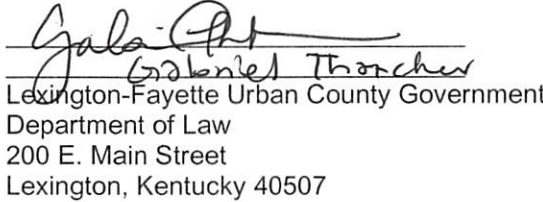 Gabriel Thatcher
Lexington-Fayette Urban County Government
Department of Law
200 E. Main Street
Lexington, Kentucky 40507